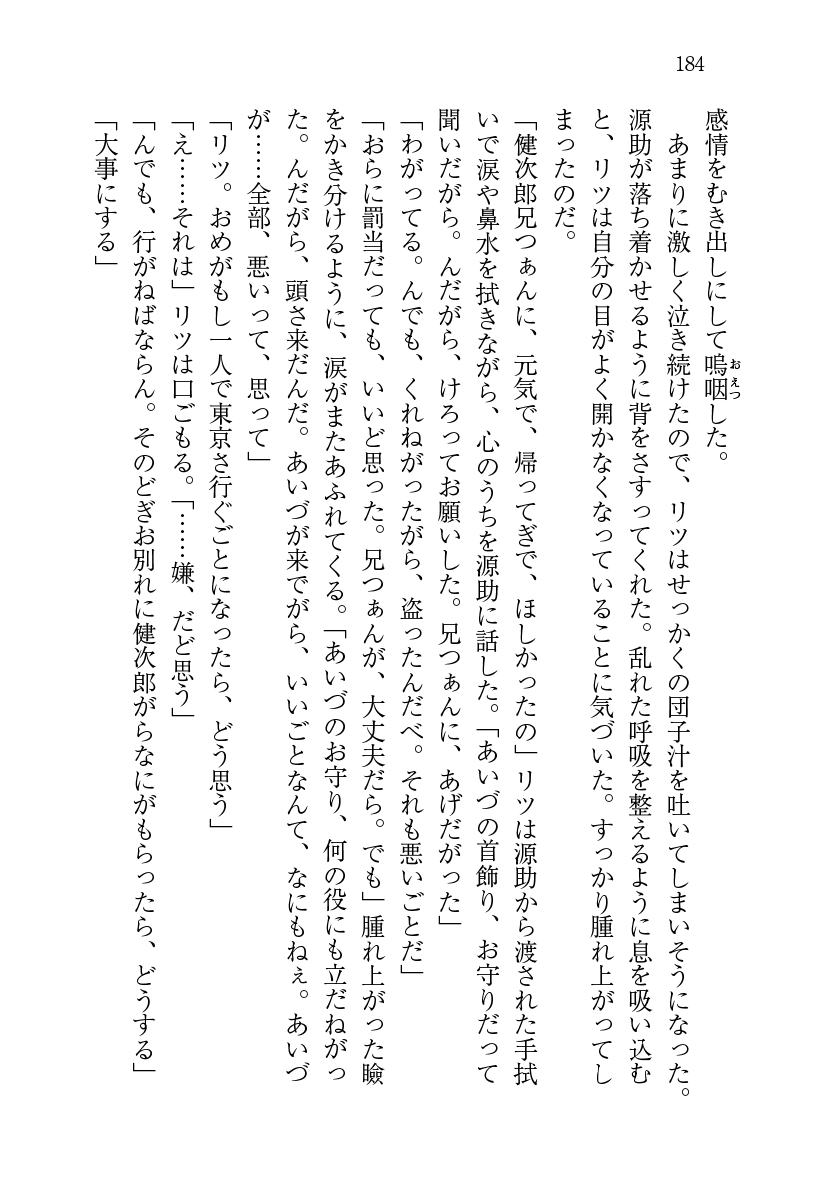 184
感情をむき出しにして嗚咽した。
おえつ
あまりに激しく泣き続けたので、リツはせっかくの団子汁を吐いてしまいそうになった。
源助が落ち着かせるように背をさすってくれた。乱れた呼吸を整えるように息を吸い込む
と、リツは自分の目がよく開かなくなっていることに気づいた。すっかり腫れ上がってし
まったのだ。
「健次郎兄つぁんに、元気で、帰ってぎで、ほしかったの」リツは源助から渡された手拭
いで涙や鼻水を拭きながら、心のうちを源助に話した。「あいづの首飾り、お守りだって
聞いだがら。んだがら、けろってお願いした。兄つぁんに、あげだがった」
「わがってる。んでも、くれねがったがら、盗ったんだべ。それも悪いごとだ」
「おらに罰当だっても、いいど思った。兄つぁんが、大丈夫だら。でも」腫れ上がった瞼
をかき分けるように、涙がまたあふれてくる。「あいづのお守り、何の役にも立だねがっ
た。んだがら、頭さ来だんだ。あいづが来でがら、いいごとなんて、なにもねぇ。あいづ
が……全部、悪いって、思って」
「リツ。おめがもし一人で東京さ行ぐごとになったら、どう思う」
「え……それは」リツは口ごもる。「……嫌、だど思う」
「んでも、行がねばならん。そのどぎお別れに健次郎がらなにがもらったら、どうする」
「大事にする」